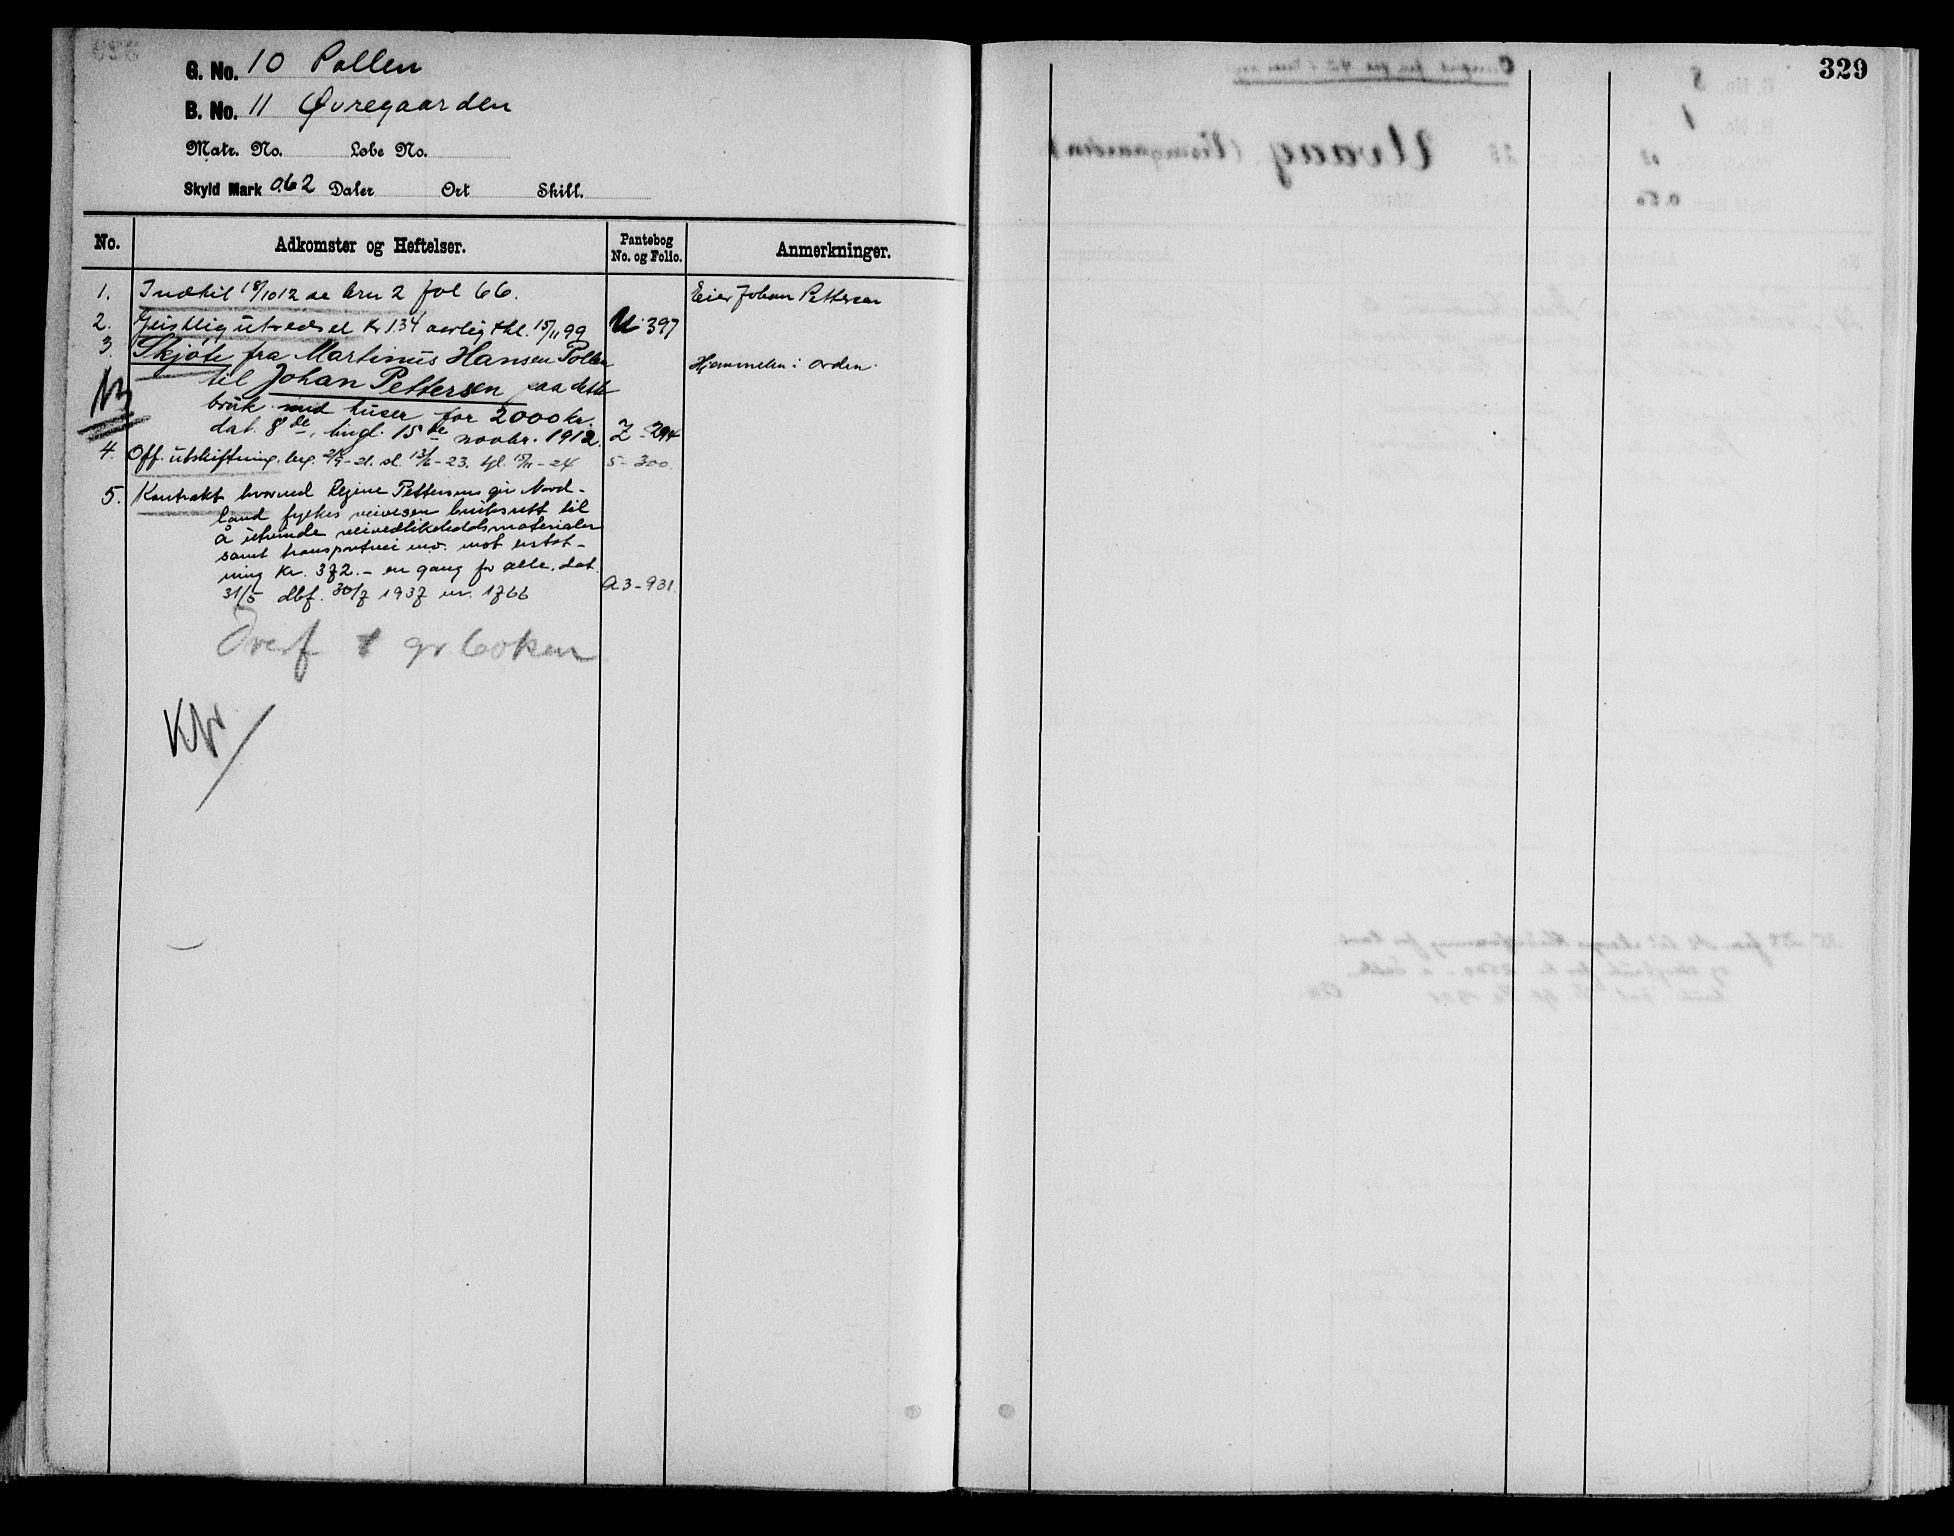 G. No. 10 Pollen
B. No. 11 Øvregaarden
Matr. No. Løbe No.
Skyld Mark 0.62 Daler Ort Skill.
329
No. Adkomster og Heftelser. Pantebog No. og Folio. Anmerkninger.
1. Indtil 18/10 12 se brn 2 fol 66. Eier Johan Pettersen
2. Geistlig utredsel kr 1.34 aarlig thl. 15/11 99 U. 397
3. Skjøte fra Martinus Hansen Pollen Hjemmelen i orden.
til Johan Pettersen paa dette
bruk med huser for 2000 kr.
dat. 8de, tingl. 15de novbr. 1912. Z - 294
4. Off. utskiftning. beg. - 21. sl. 13/6 - 23. tgl. - 24 5 - 300.
5. Kontrakt hvorved Regine Pettersen gir Nord-
land fylkes veivesen bruksrett til
å utvinde veivedlikeholdsmaterialer
samt transportvei mv. mot erstat-
ning kr. 372.- en gang for alle. dat.
31/5 dbf. 30/7 1937 nr. 1766 A 3 - 931.
Overf t gr boken